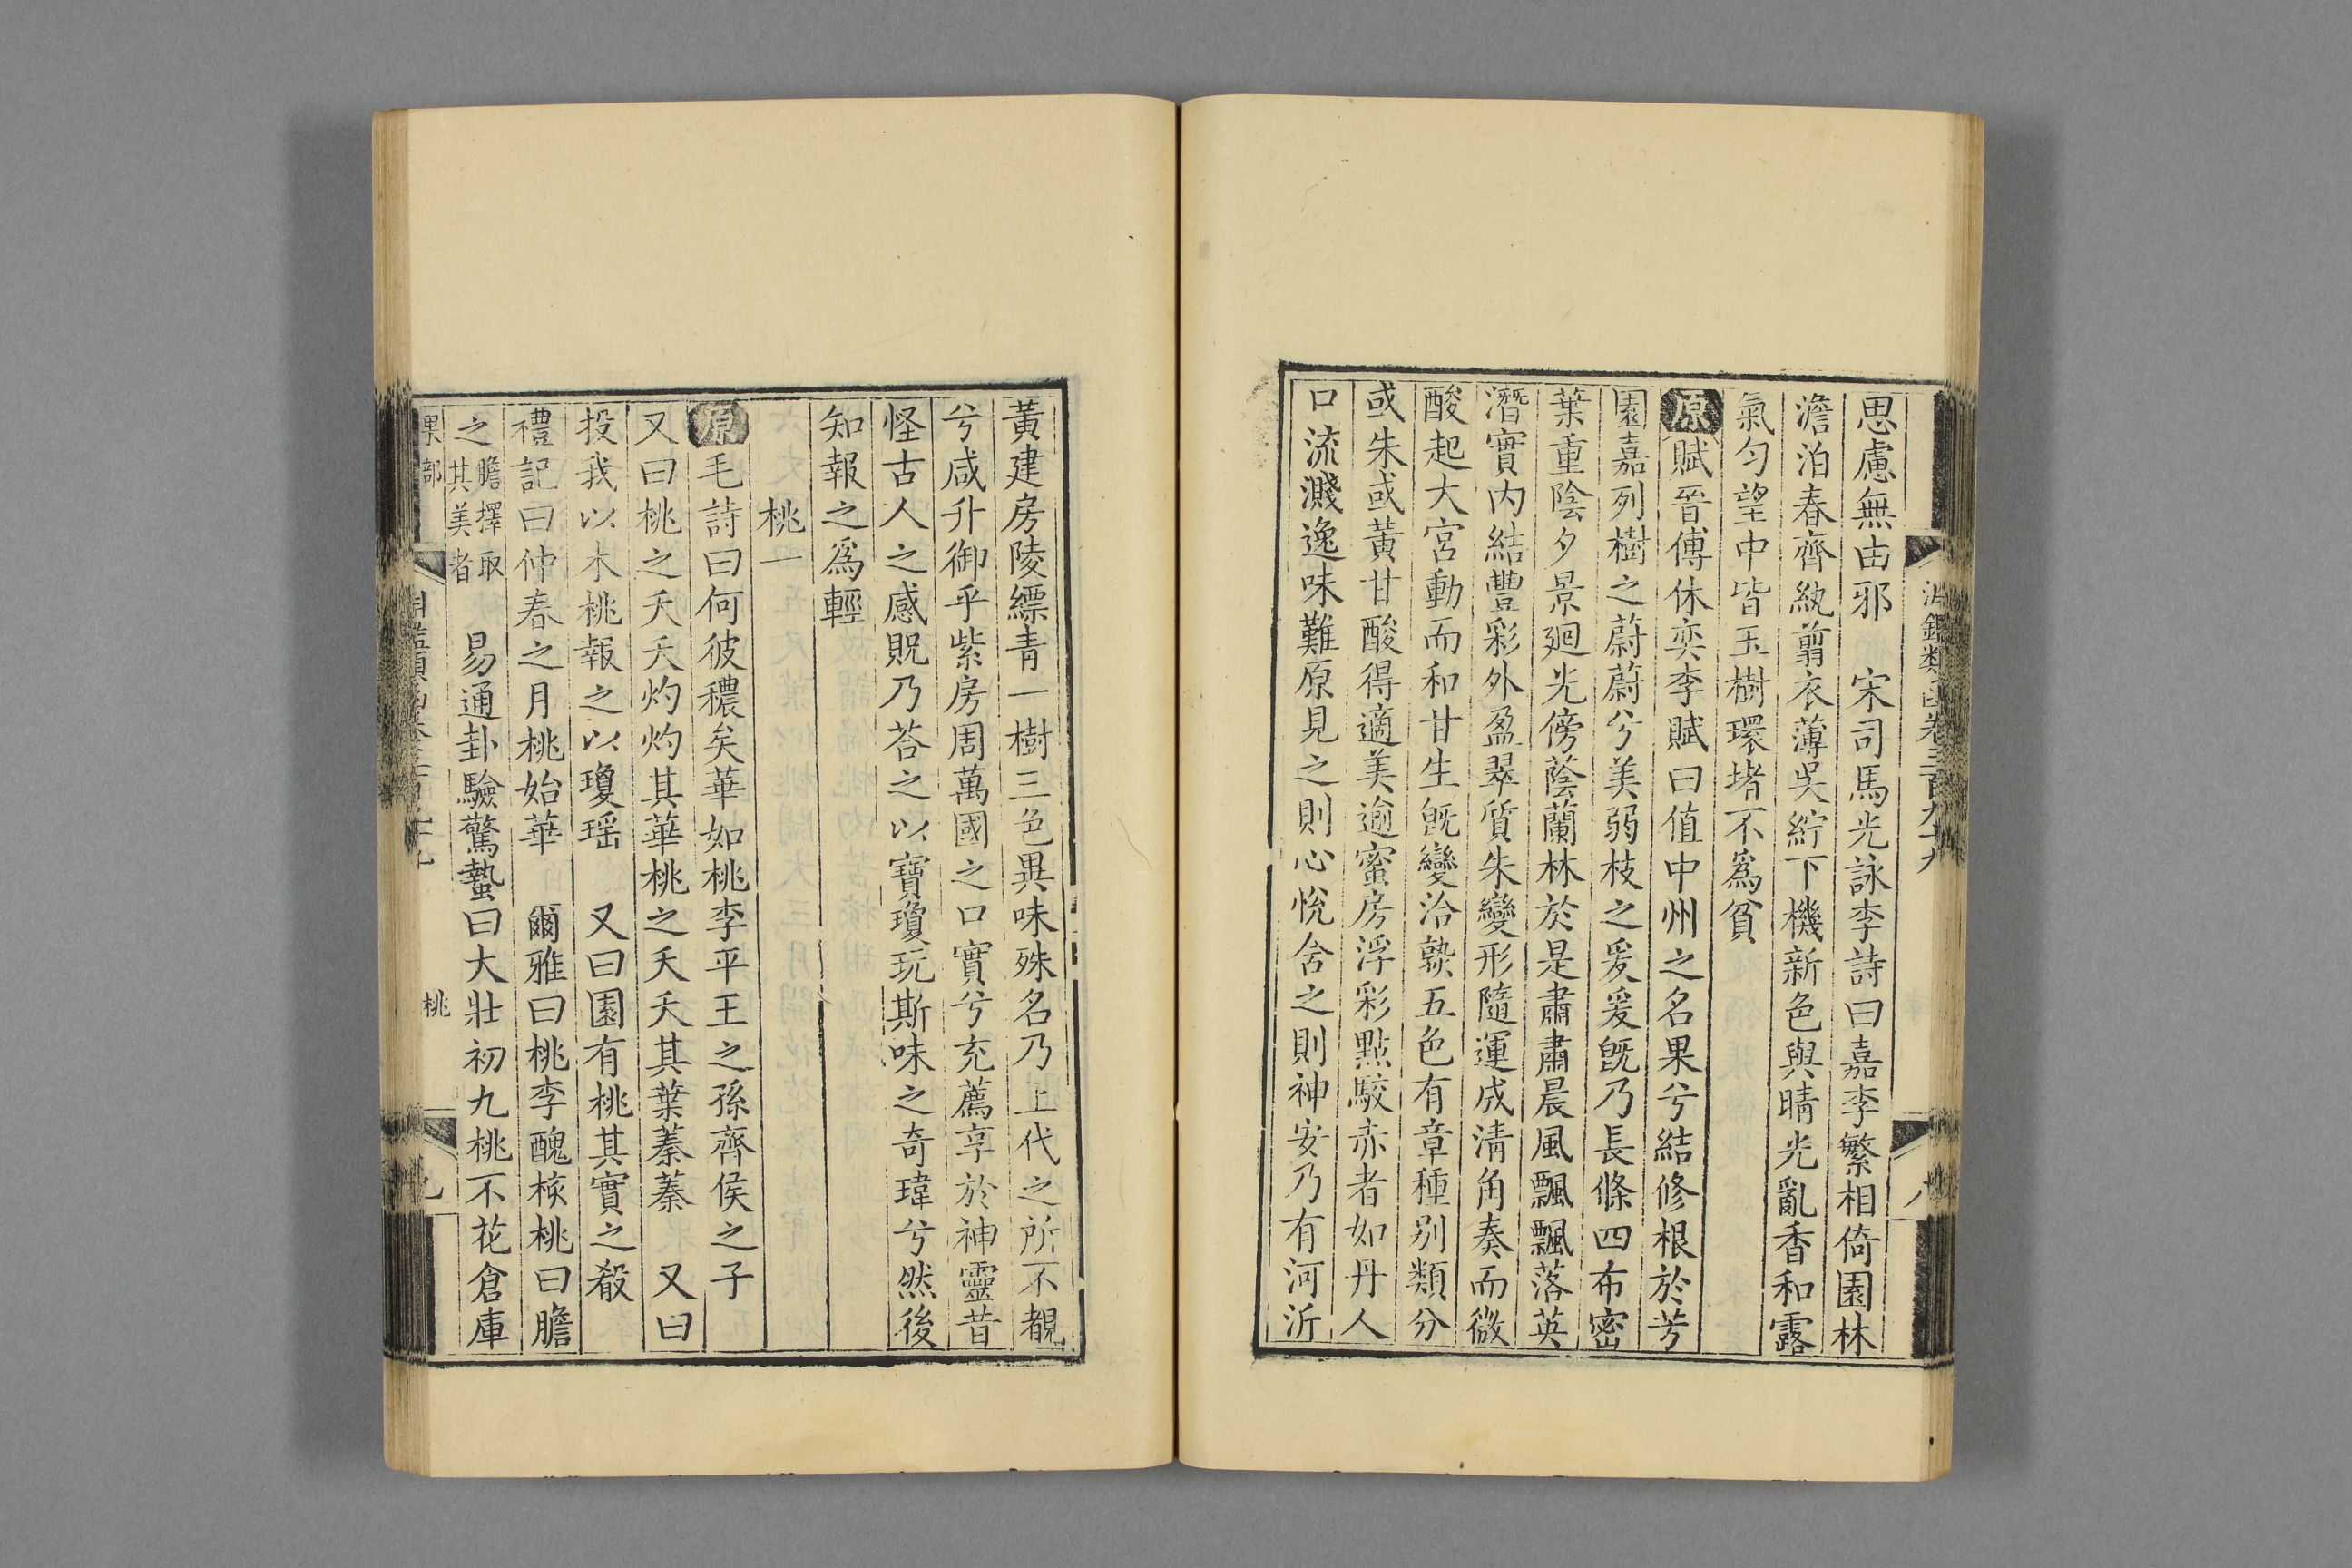 淵鑑類函卷三百九十九
八
思慮無由邪　宋司馬光詠李詩曰嘉李繁相倚園林
澹泊春齊紈翦衣薄吳紵下機新色與晴光亂香和露
氣勻望中皆玉樹環堵不爲貧
原賦晉傅休奕李賦曰值中州之名果兮結修根於芳
園嘉列樹之蔚蔚兮美弱枝之爰爰既乃長條四布密
葉重陰夕景廻光傍蔭蘭林於是肅肅晨風飄飄落英
潛實内結豐彩外盈翠質朱變形隨運成清角奏而微
酸起大宮動而和甘生既變洽孰五色有章種别類分
或朱或黃甘酸得適美逾蜜房浮彩點駮赤者如丹人
口流濺逸味難原見之則心悅含之則神安乃有河沂
黃建房陵縹青一樹三色異味殊名乃上代之所不覩
兮咸升御乎紫房周萬國之口實兮充薦享於神靈昔
怪古人之感貺乃荅之以寶瓊玩斯味之奇瑋兮然後
知報之爲輕
桃一
原毛詩曰何彼穠矣華如桃李平王之孫齊侯之子
又曰桃之夭夭灼灼其華桃之夭夭其葉蓁蓁　又曰
投我以木桃報之以瓊瑶　又曰園有桃其實之殽
禮記曰仲春之月桃始華　爾雅曰桃李醜核桃曰膽
之膽擇取其美者　易通卦驗驚蟄曰大壯初九桃不花倉庫
果部
桃
九